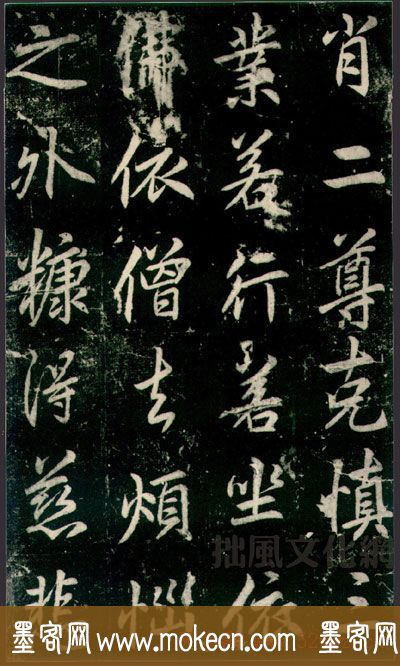 肖二尊克慎三
業若行若坐依
佛依僧去煩惱
之外糠得慈悲
拙風文化網
墨客网 www.mokecn.com 墨客网